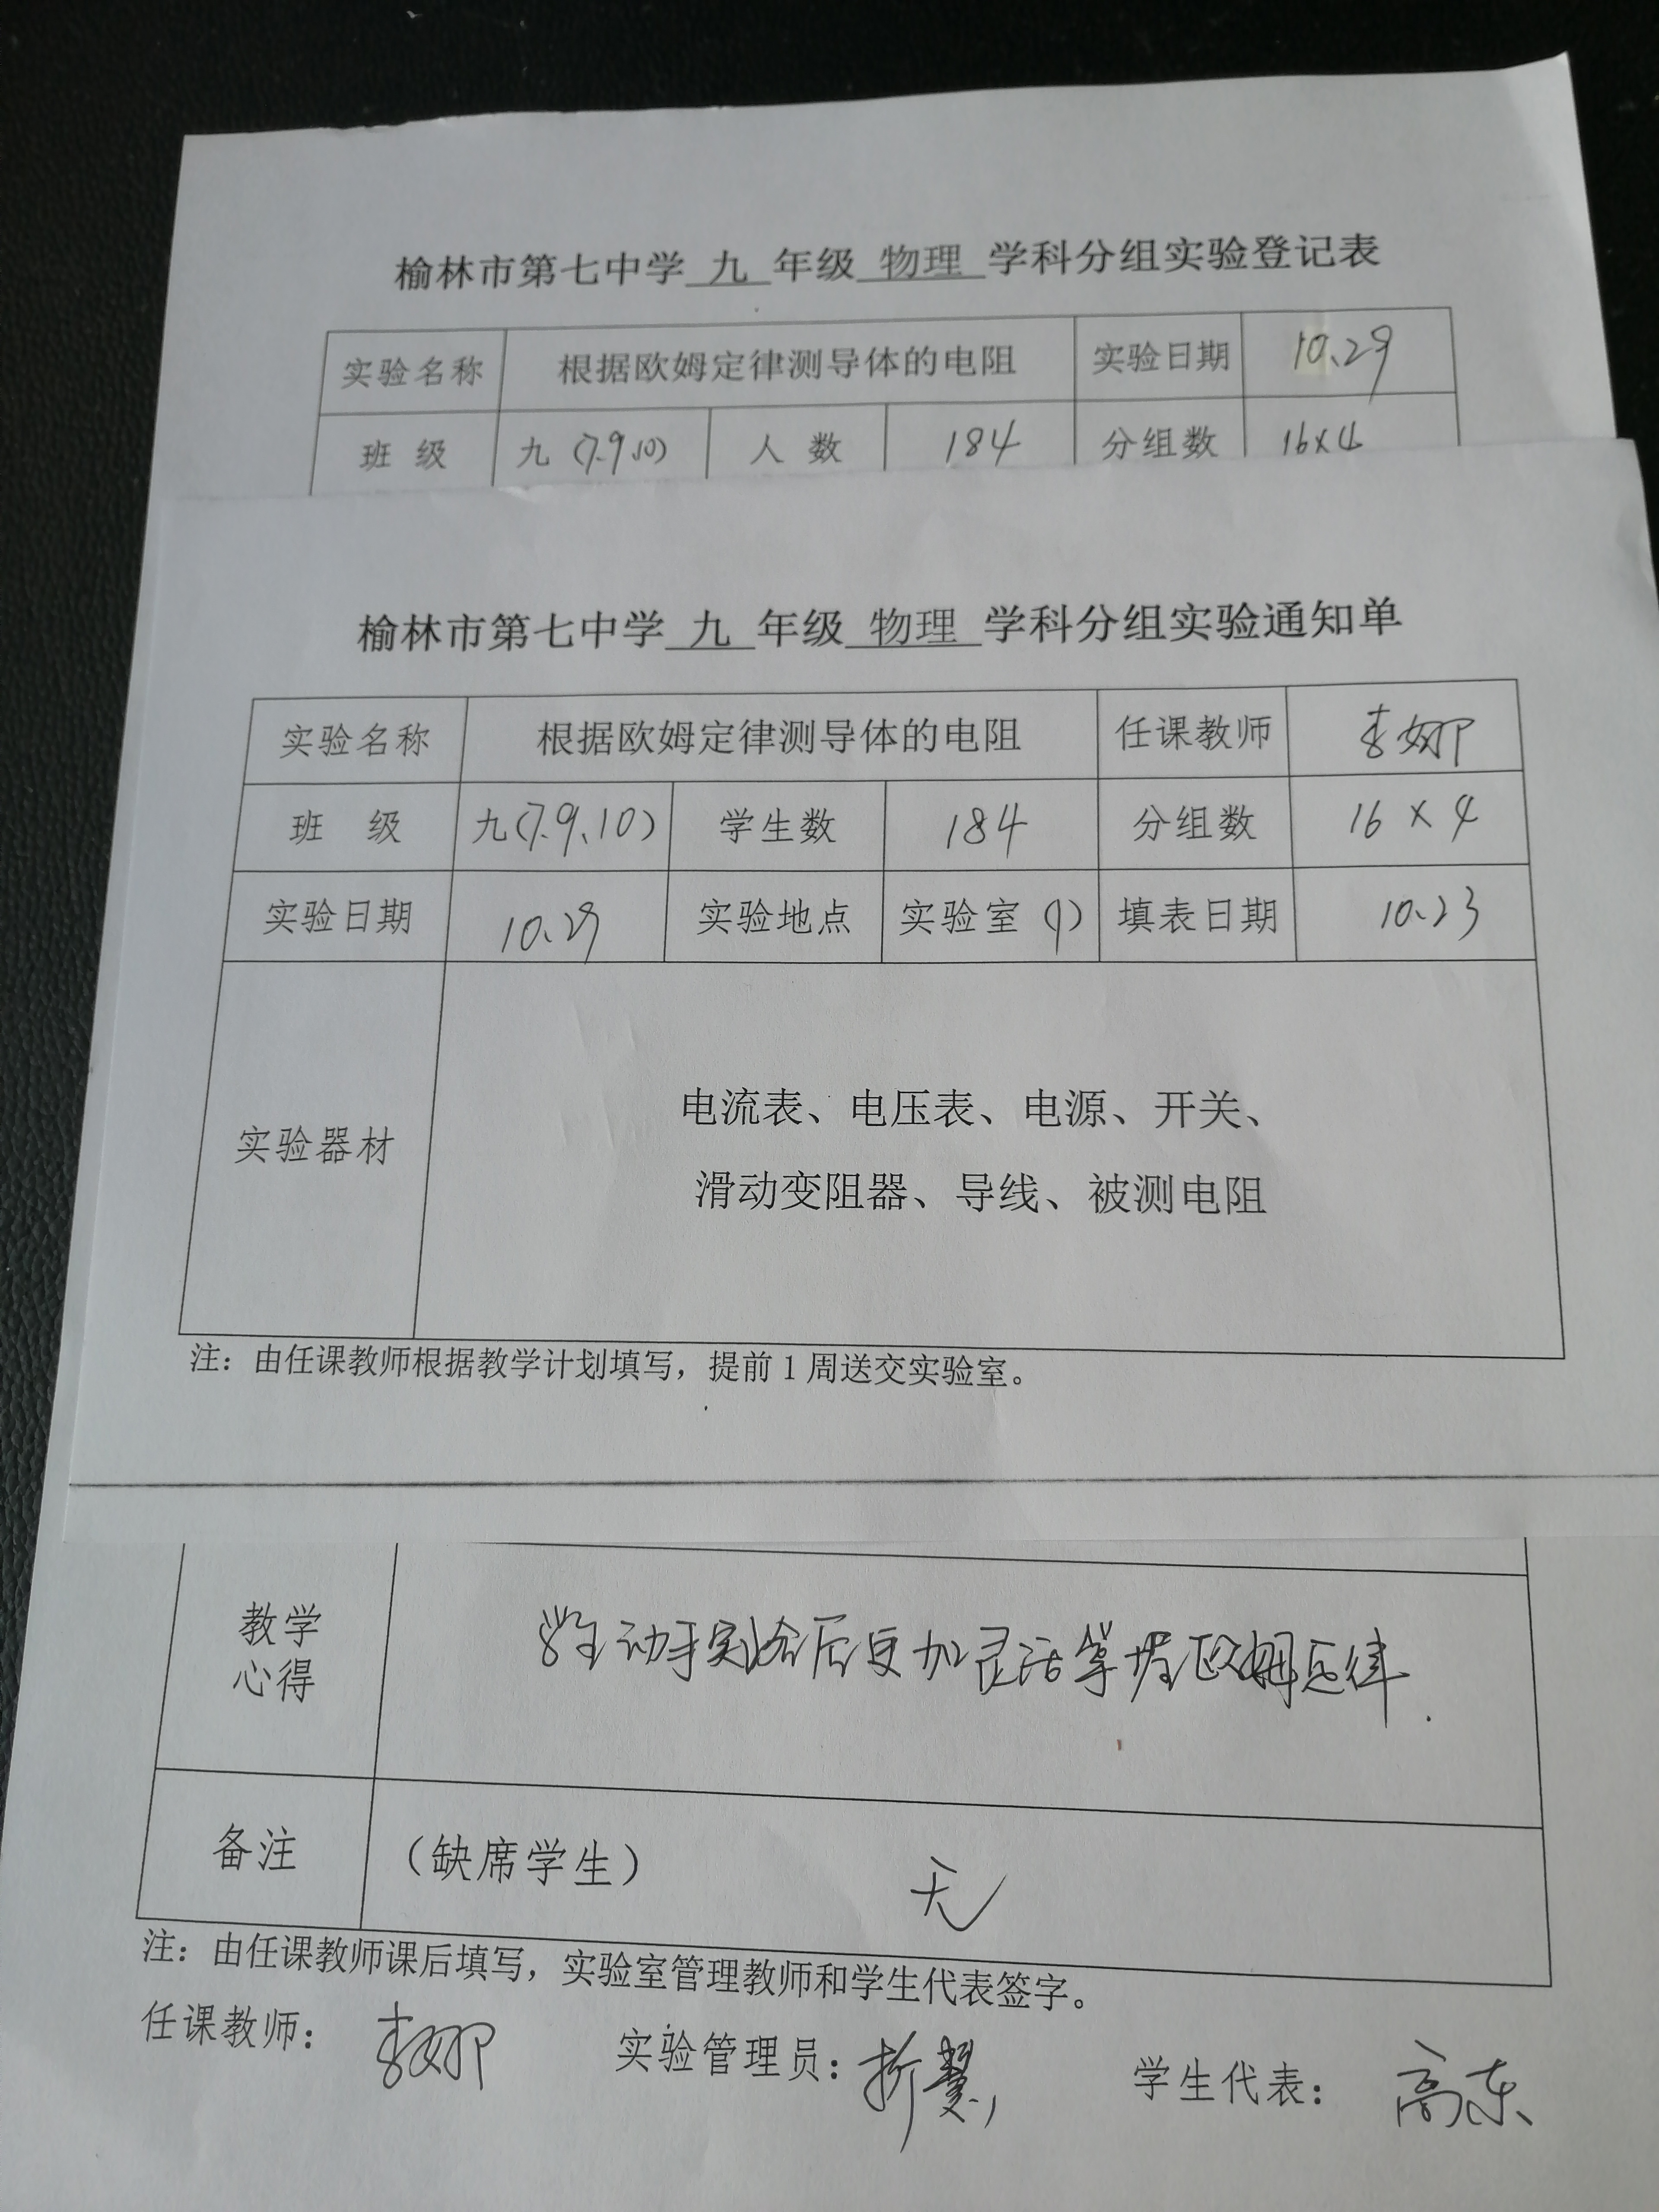 榆林市第七中学 九 年级 物理 学科分组实验登记表
实验名称 根据欧姆定律测导体的电阻 实验日期 10.29
班 级 九（7.9.10） 人 数 184 分组数 16×4
榆林市第七中学 九 年级 物理 学科分组实验通知单
实验名称 根据欧姆定律测导体的电阻 任课教师 李娜
班 级 九（7.9、10） 学生数 184 分组数 16×4
实验日期 10.29 实验地点 实验室（1） 填表日期 10.23
电流表、电压表、电源、开关、
实验器材
滑动变阻器、导线、被测电阻
注：由任课教师根据教学计划填写，提前1周送交实验室。
教学
心得
学生动手实验后更加灵活掌握欧姆定律.
备注 （缺席学生） 无
注：由任课教师课后填写，实验室管理教师和学生代表签字。
任课教师： 李娜 实验管理员：折慧 学生代表： 高东